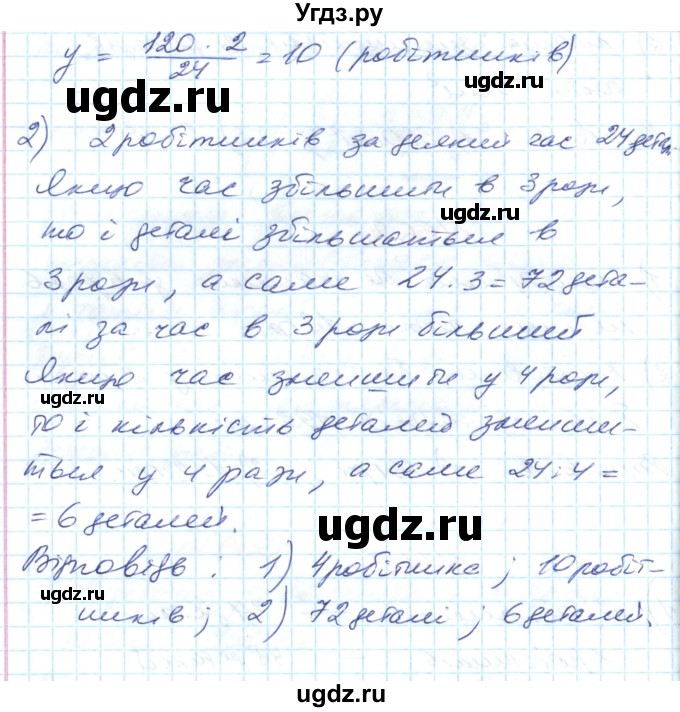 Угдз.ру
y = 120 · 2 / 24 = 10 (робітників)
ugdz.ru
ugdz.ru
2) 2 робітників за деякий час 24 детал.
Якщо час збільшити в 3 рази,
ugdz.ru
то і деталі збільшаться в
3 рази, а саме 24 · 3 = 72 дета-
ugdz.ru
лі за час в 3 рази більший
ugdz.ru
Якщо час зменшити у 4 рази,
то і кількість деталей зменши-
ться у 4 рази, а саме 24 : 4 =
= 6 деталей.
ugdz.ru
Відповідь : 1) 4 робітника ; 10 робіт-
ugdz.ru
ників ; 2) 72 деталі ; 6 деталей.
ugdz.ru
ugdz.ru